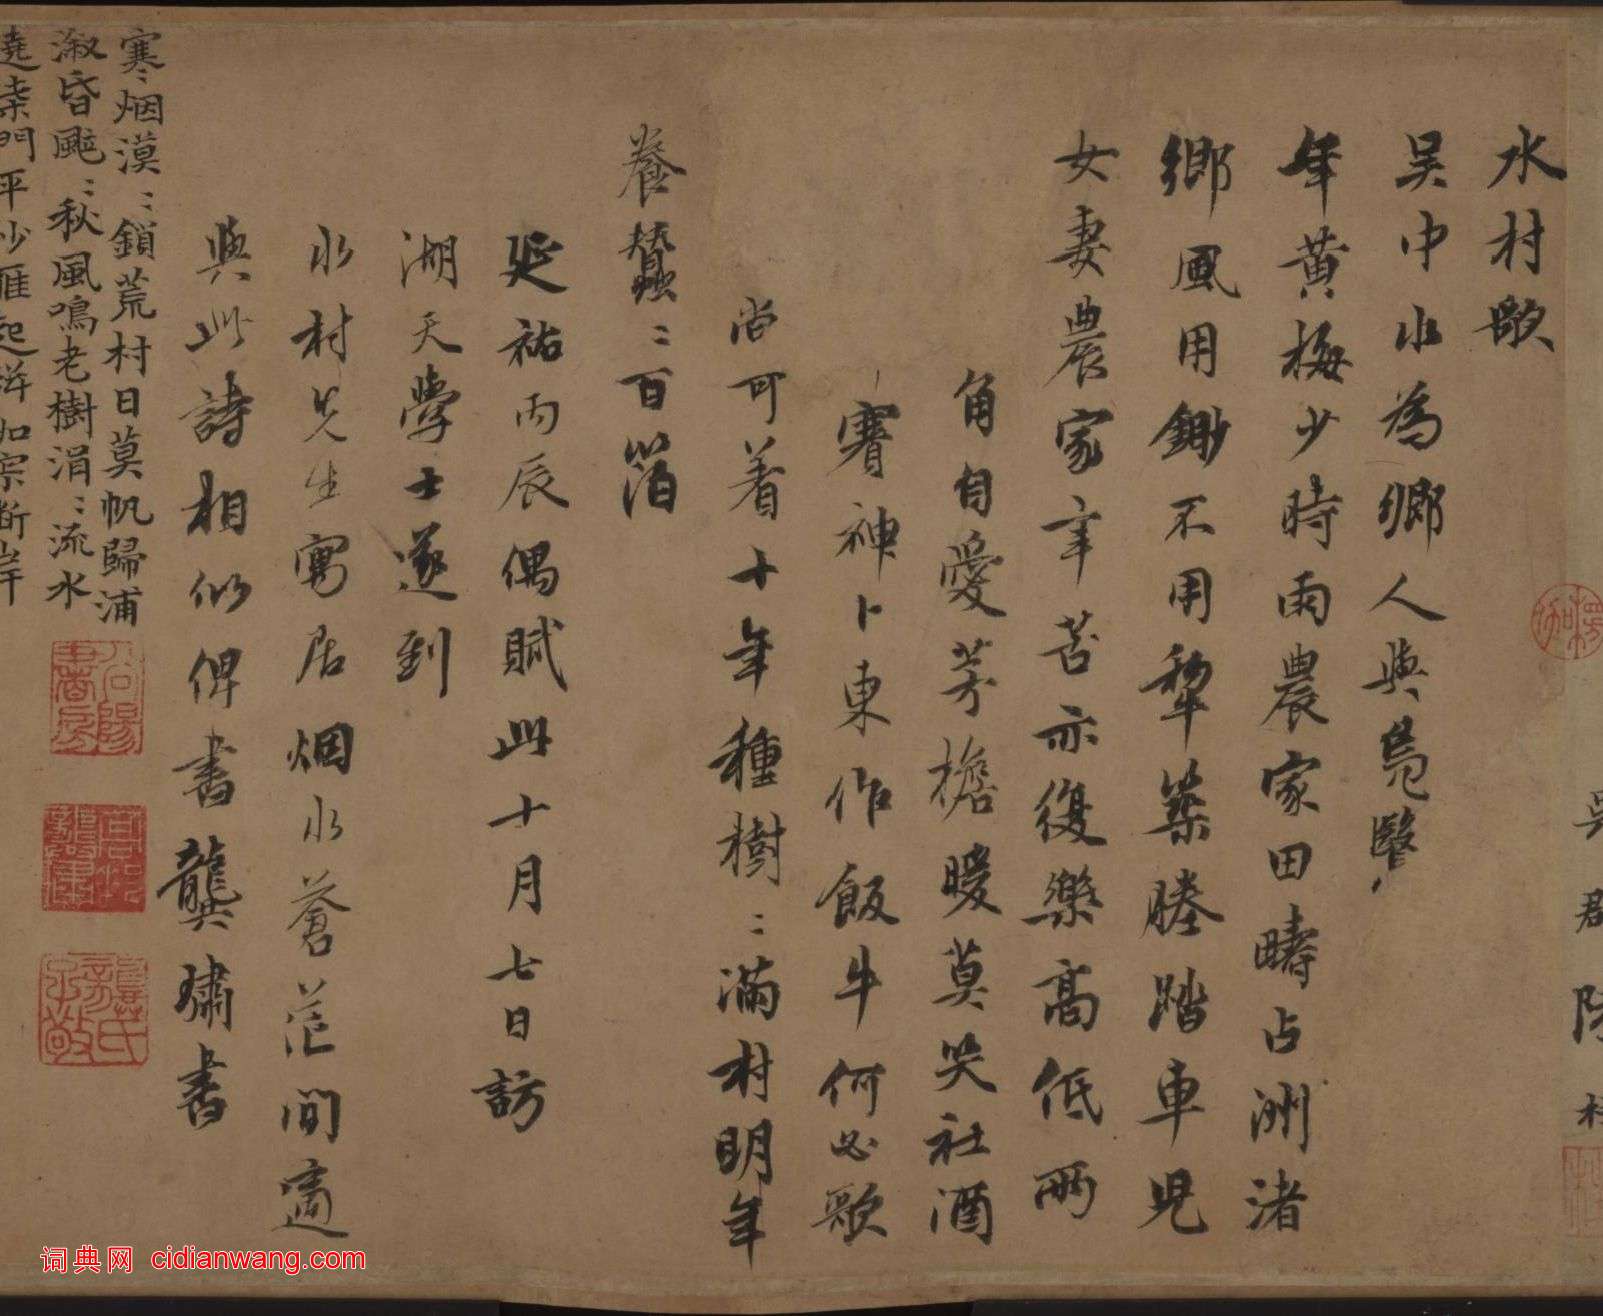 吳郡陸
水村歌
吳中水為鄉人與鳧鷖
年黃梅少時雨農家田疇占洲渚
鄉風用鋤不用犂築塍踏車児
女妻農家辛苦亦復樂高低兩
角自愛茅檐暖莫哭社酒
賽神卜東作飯牛何必歌
尚可著十年種樹〻滿村明年
養蠶〻百箔
延祐丙辰偶賦此十月七日訪
湖天學士遂到
水村兄生寓居烟水蒼茫間適
與此詩相似俾書龔璛書
寒烟漠〻鎖荒村日莫帆歸浦
溆昏颭〻秋風鳴老樹涓〻流水
遶柴門平沙雁起
龔氏子敬
词典网 cidianwang.com